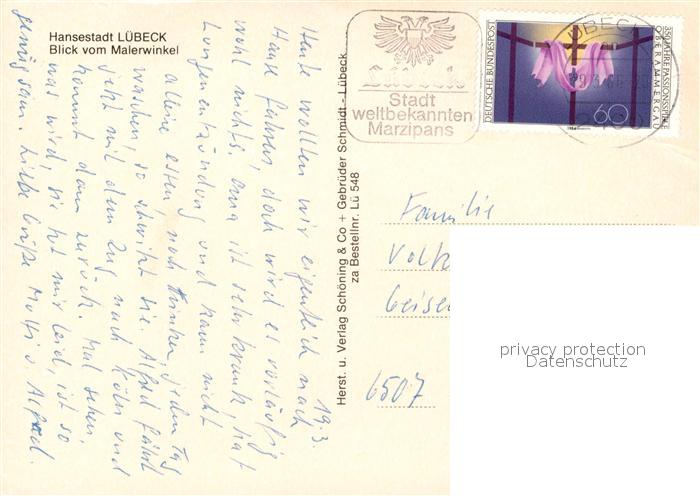 Hansestadt LÜBECK
Blick vom Malerwinkel
19.3.
Heute wollten wir eigentlich nach
Hause fahren, doch wird es vorläufig
wohl nichts. Oma ist sehr krank, hat
Lungenentzündung und kann nicht
alleine essen, noch trinken, jeden Tag
waschen, so schwitzt sie. Alfred fährt
jetzt mit dem Zug nach Köln und
kommt dann zurück. Mal sehen,
was wird, sie tut mir leid, ist so
genügsam. Liebe Grüße Mutti u. Alfred.
Herst. u. Verlag Schöning & Co + Gebrüder Schmidt - Lübeck
za Bestellnr. Lü 548
Lübeck
Stadt
weltbekannten
Marzipans
DEUTSCHE BUNDESPOST
350 JAHRE PASSIONSSPIELE
OBERAMMERGAU
60
LÜBECK
Familie
Volk
Geisen
6507
privacy protection
Datenschutz